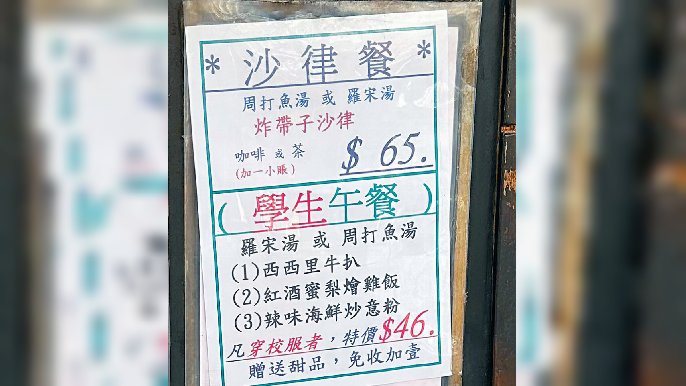 * 沙律餐 *
周打魚湯 或 羅宋湯
炸帶子沙律
咖啡 或 茶
(加一小賬)
$ 65.
(學生午餐)
羅宋湯 或 周打魚湯
(1)西西里牛扒
(2)紅酒蜜梨燴雞飯
(3)辣味海鮮炒意粉
凡穿校服者，特價$46.
贈送甜品，免收加壹